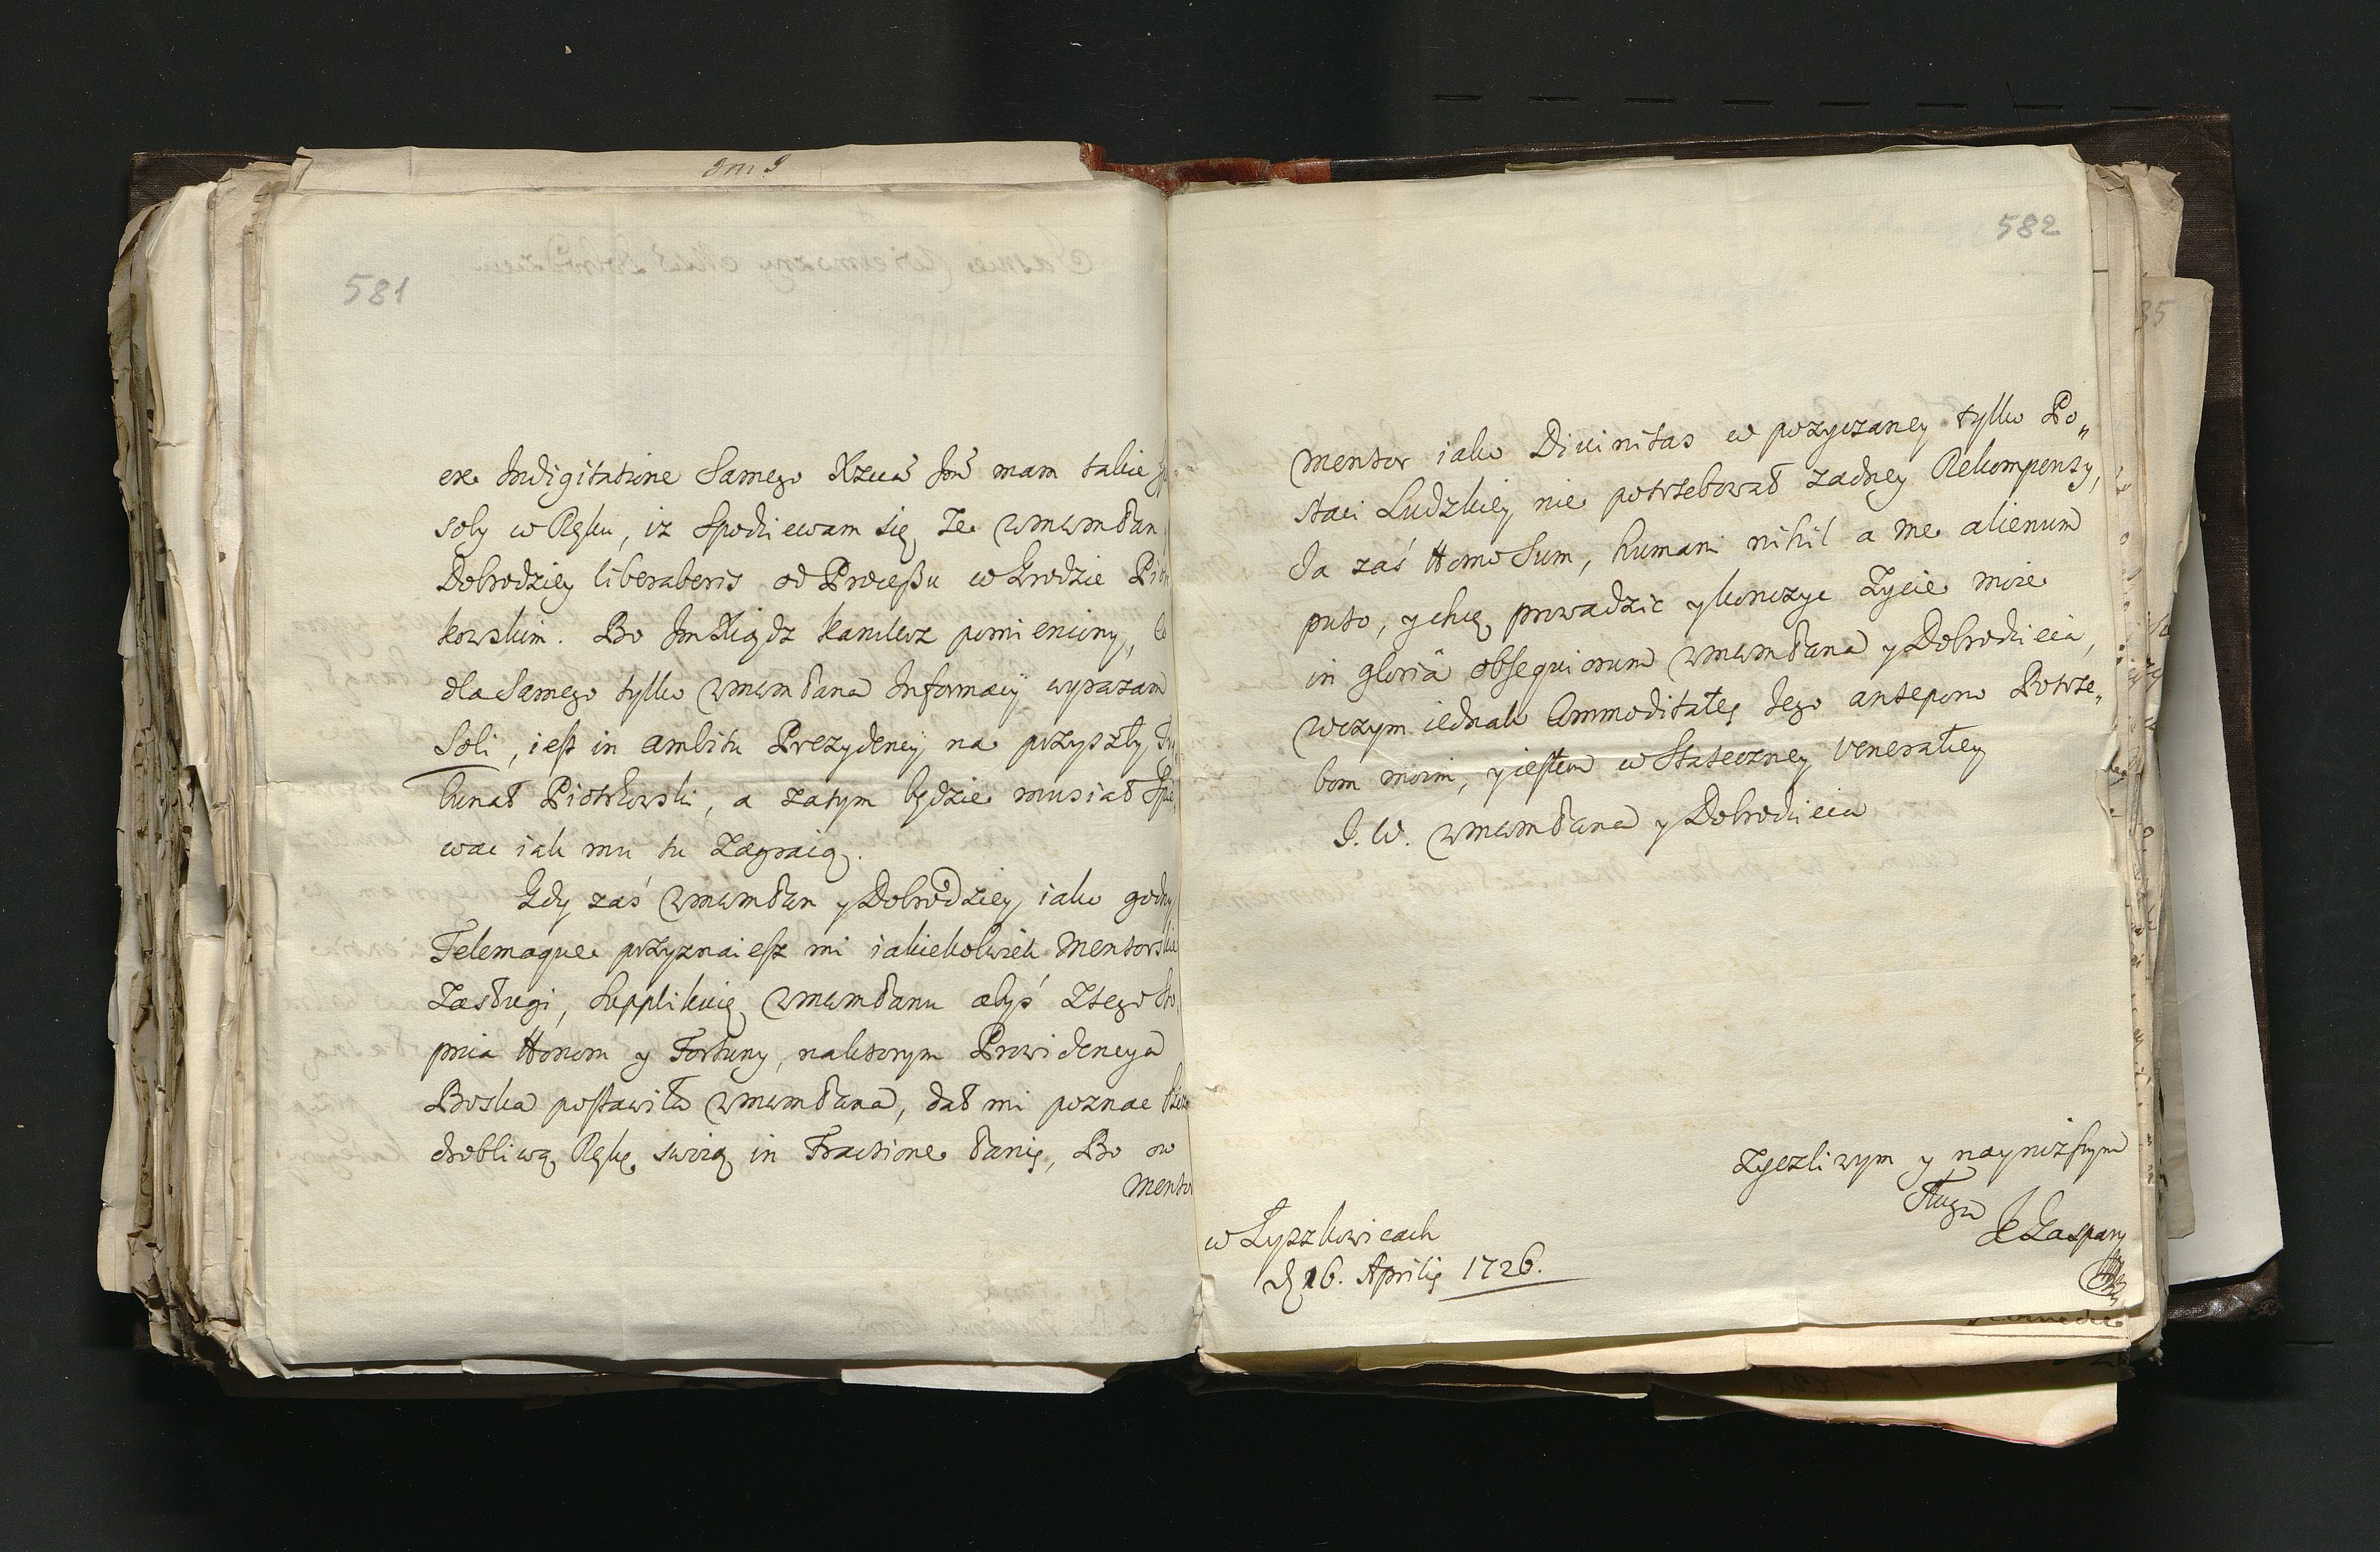 581
ex Indigitatione Samego Xzcia Jm mam takie
soby w Ręku, iz Spodziewam się, Ze WmwmPan
Dobrodziey liberaberis od Processu w Grodzie Piotr
kowskim. Bo Jm Xiądz Kanclerz pomieniony,
dla Samego tylko WmwmPana Informacÿ wyrazam
Soli, iest in ambitu Prezydencÿ na przyszły Try
bunał Piotrkowski, a zatym będzie musiał Spie
wac iak mu tu Zagraią.
Gdy zaś WmwmPan y Dobrodziey, iako godny
Telemaque przyznaiesz mi iakiekolwiek Mentorskie
Zasługi, Supplikuię WmwmPanu abyś Ztego Sto
pnia Honoru y Fortuny, naktorym Prowidencya
Boska postawiła WmwmPana, dał mi poznac Szczo
drobliwą Rękę swoią in Fractione Panis, Bo ow
Mentor
582
Mentor iako Divinitas w pozyczaney tylko Po„
staci Ludzkiey nie potrzebował zadney Rekompensy,
Ja zaś Homo Sum, humani nihil a me alienum
puto, y chcę prowadzic y konczyc Zycie moie
in gloriâ obsequiorum WmwmPana y Dobrodzieia,
wczym iednak Commoditates Jego antepono Potrze„
bom moim, y iestem w Stateczney Veneratiey
J. W. WmwmPana y Dobrodzieia
Zyczliwym y naynizszym
Sługa
w Łyszkowicach
d 16. Aprilis 1726.